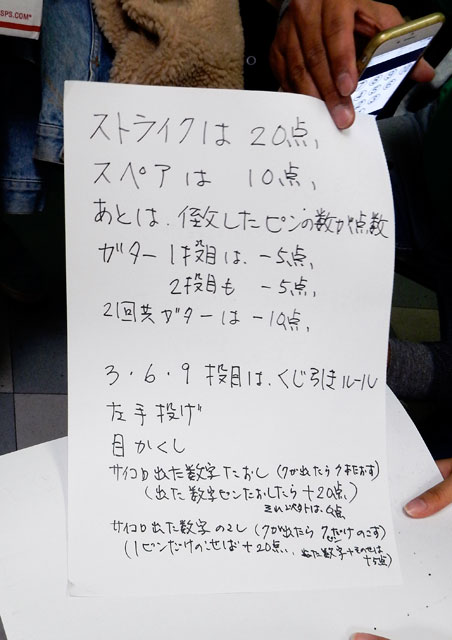 SPS.COM®
ストライクは 20点、
スペアは 10点、
あとは、倒したピンの数が点数
ガター 1投目は、-5点、
2投目も -5点、
2回共ガターは -10点、
3・6・9 投目は、くじ引きルール
左手投げ
目かくし
サイコロ出た数字たおし (7が出たら 7本たおす)
(出た数字ピンたおしたら +20点、)
それ以外は、0点
サイコロ出た数字のこし (7が出たら 7だけのこす)
(1ピンだけのこせば +20点、、出た数字+その他は
+5点)